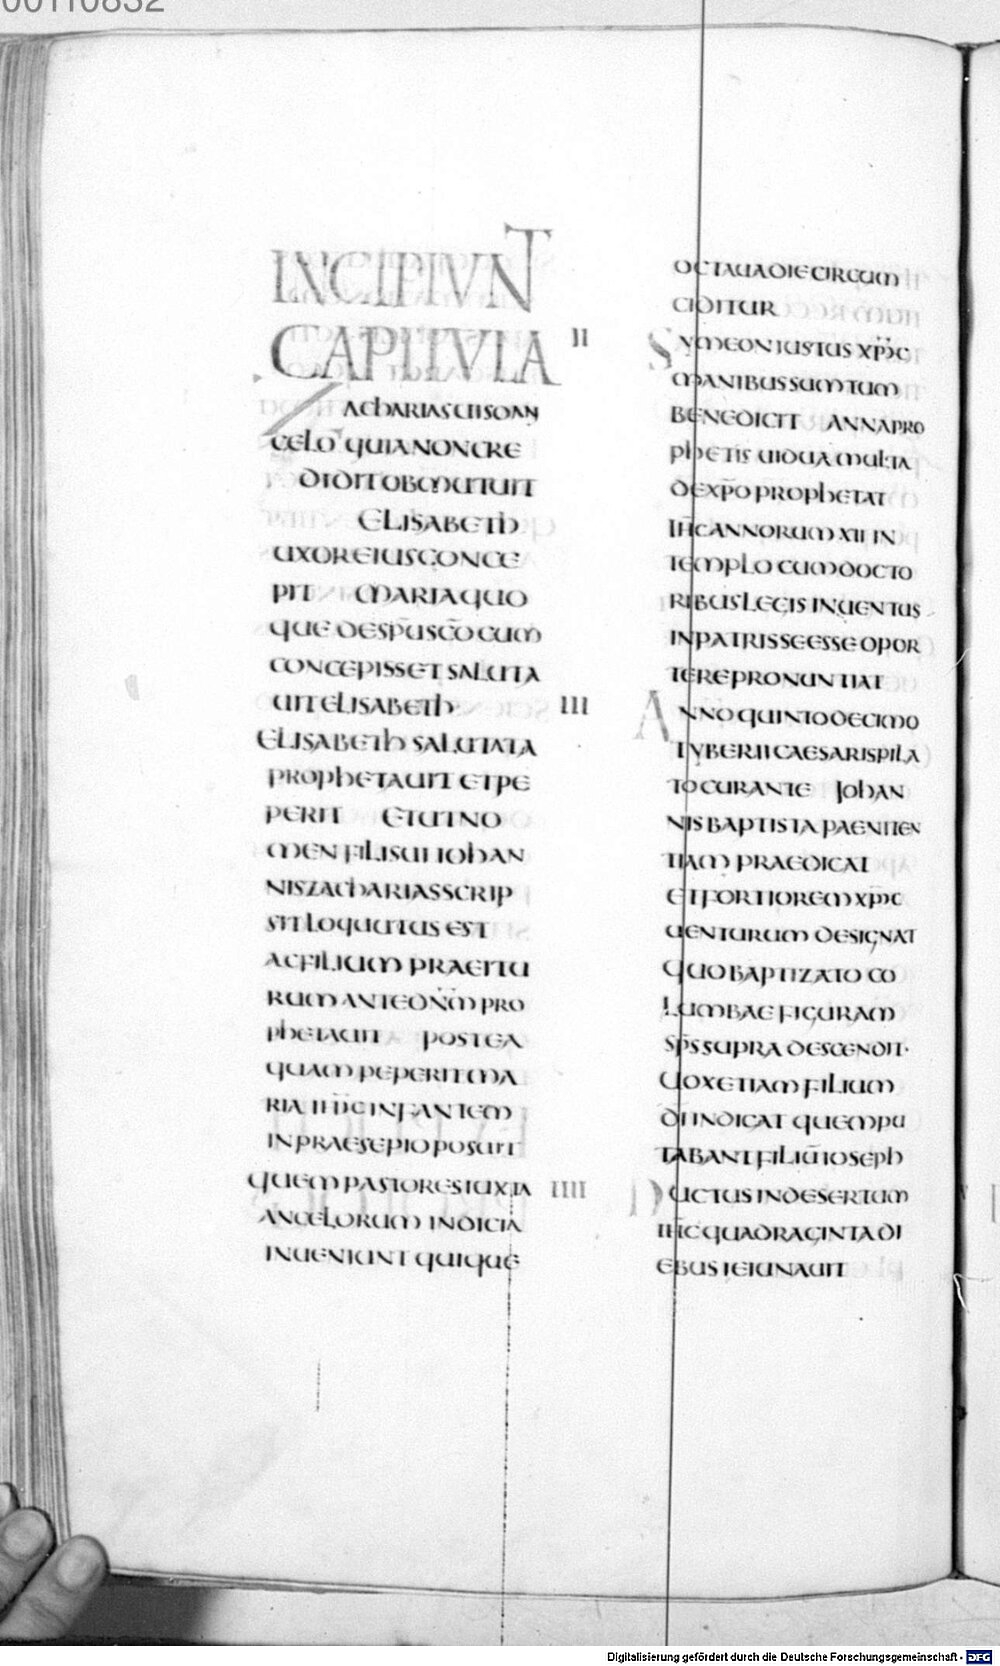 INCIPIUNT
CAPITULA
ZACHARIAS UISO AN
GELO QUIA NON CRE
DIDIT OBMUTUIT
ELISABETH
UXOR EIUS CONCE
PIT MARIA QUO
QUE DESPUSCO CUM
CONCEPISSET SALUTA
UIT ELISABETH
ELISABETH SALUTATA
PROPHETAUIT ET PE
PERIT ET UT NO
MEN FILI SUI IOHAN
NIS ZACHARIAS SCRIP
SIT LOQUUTUS EST
AC FILIUM PRAEITU
RUM ANTE DN̄M PRO
PHETAUIT POSTEA
QUAM PEPERIT MA
RIA INFANTEM
IN PRAESEPIO POSUIT
QUEM PASTORES IUXTA
ANGELORUM INDICIA
INUENIUNT QUIQUE
OCTAUA DIE CIRCUM
CIDITUR
II SYMEON IUSTUS XP̄M̄C
MANIBUS SUMTUM
BENEDICIT ANNA PRO
PHETIS UIDUA MULTA
DE XP̄O PROPHETAT
IH̄C ANNORUM XII IN
TEMPLO CUM DOCTO
RIBUS LEGIS INUENTUS
IN PATRIS SE ESSE OPOR
TERE PRONUNTIAT
III ANNO QUINTODECIMO
TYBERII CAESARIS PILA
TO CURANTE IOHAN
NIS BAPTISTA PAENITEN
TIAM PRAEDICAT
ET FORTIOREM XP̄M̄C
UENTURUM DESIGNAT
QUO BAPTIZATO CO
LUMBAE FIGURAM
SP̄S SUPRA DESCENDIT·
UOX ETIAM FILIUM
D̄I INDICAT QUEM PU
TABANT FILIŪ IOSEPH
IIII DUCTUS IN DESERTUM
IH̄C QUADRAGINTA DI
EBUS IEIUNAUIT
Digitalisierung gefördert durch die Deutsche Forschungsgemeinschaft - DFG